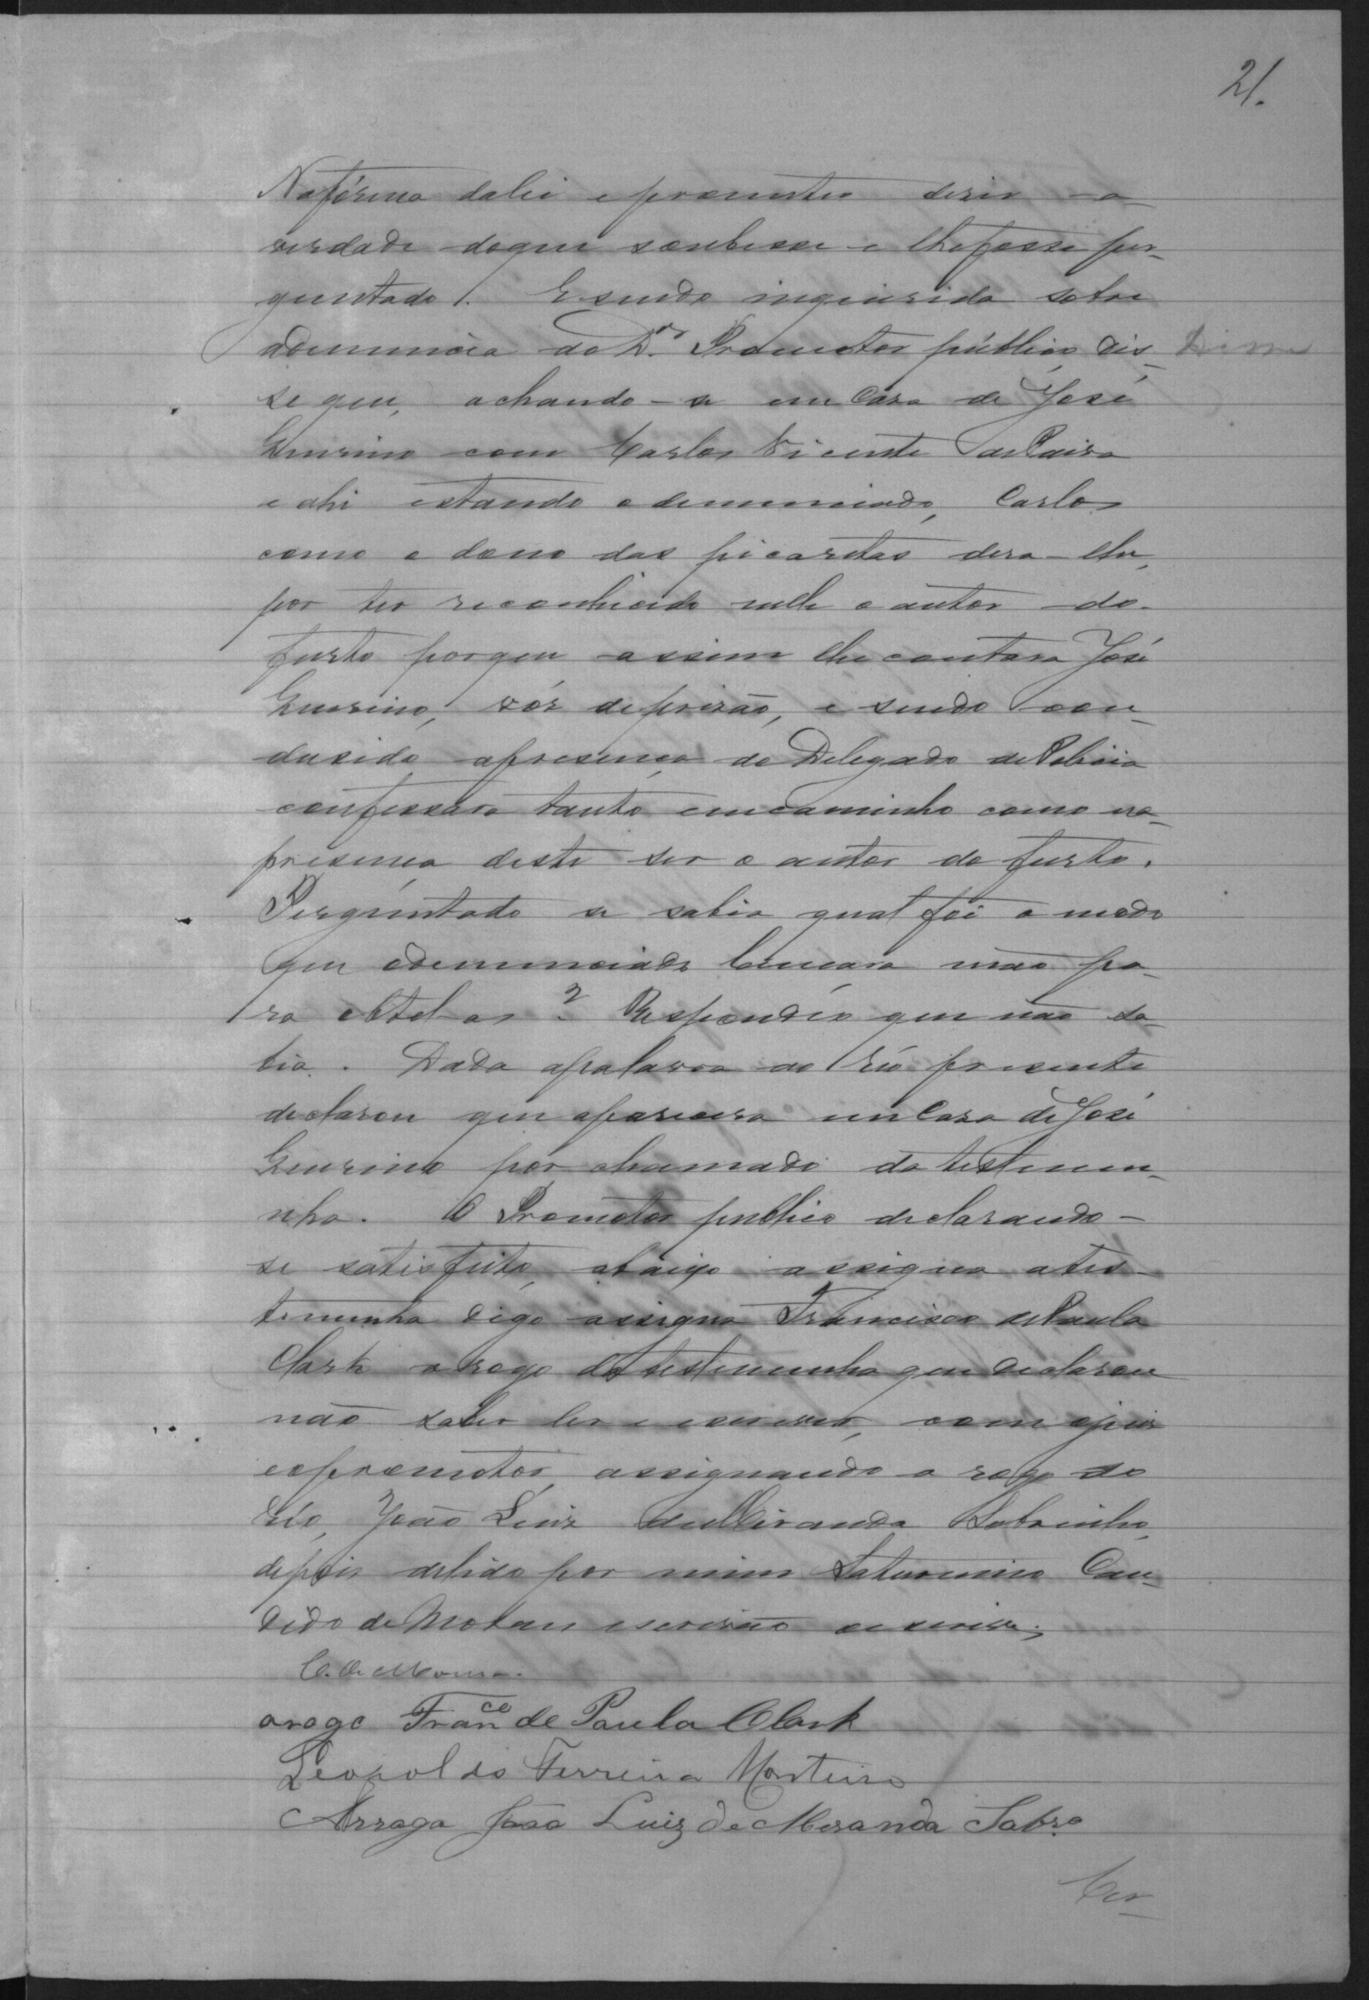 21.
Na fórma da lei e prometteo diser a
verdade do que soubesse e lhe fosse per-
guntado. E sendo inquirida sobre
a denuncia do Dr. Promotor público, dis-
se que, achando-se em Casa de José
Guerino com Carlos Vicente de Paiva
e ahi estando o denunciado, Carlos
como o dono das picaretas dera-lhe,
por ter reconhecido nelle o autor do
furto porque assim lhe contara José
Guerino, vóz de prizão, e sendo con-
dusido a presença do Delegado de Policia
confessara tanto em caminho como na
presença deste ser o autor do furto.
Perguntado se sabia qual foi o modo
que o denunciado lançara mão pa-
ra obtel-as? Respondeo que não sa-
bia. Dada a palavra ao réo presente
declarou que aparecera em Casa de José
Guerino por chamado da testemu-
nha. O Promotor publico declarando-
se satisfeito, abaixo assigna a tes-
temunha digo assigna Francisco de Paula
Clark a rogo da testemunha que declarou
não saber ler e escrever, com o juis
e o promotor, assignando a rogo do
réo, João Luiz de Miranda Sobrinho,
depois de lido por mim Saturnino Can-
dido de escrivão o escrevi.
C. de Moura.
arogo Franco de Paula Clark
Leopoldo Ferreira Monteiro
Arrogo João Luiz de Meranda Sobro